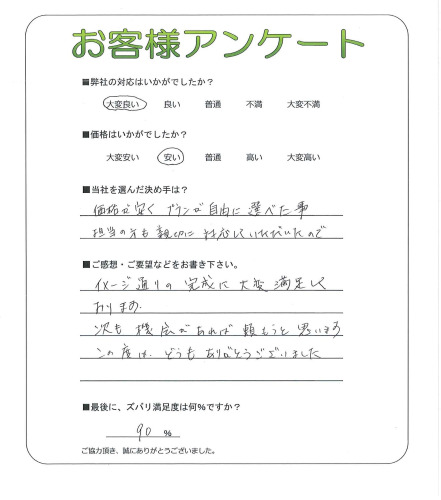 お客様アンケート
■弊社の対応はいかがでしたか？
大変良い 良い 普通 不満 大変不満
■価格はいかがでしたか？
大変安い 安い 普通 高い 大変高い
■当社を選んだ決め手は？
価格が安く プランが自由に選べた事
担当の方も親切に対応していただいたので
■ご感想・ご要望などをお書き下さい。
イメージ通りの完成に大変満足して
おります。
次も機会があれば頼もうと思います
この度は、どうもありがとうございました
■最後に、ズバリ満足度は何%ですか？
90 %
ご協力頂き、誠にありがとうございました。